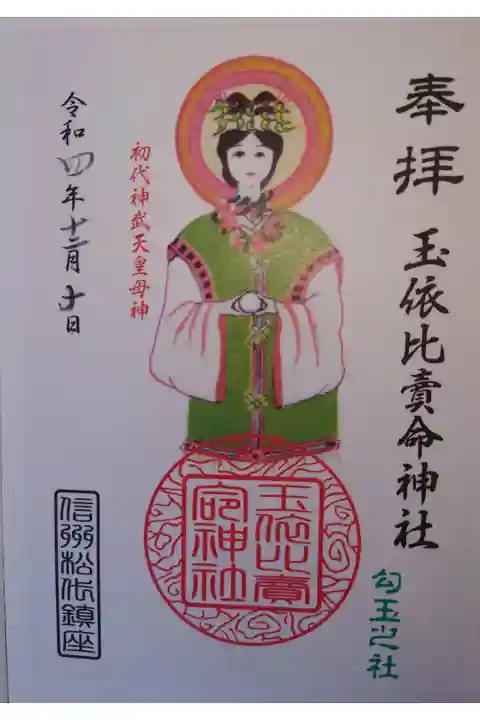 奉拝
玉依比賣命神社
勾玉之社
玉依比賣
命神社
初代神武天皇母神
令和四年十二月十日
信州松代鎮座